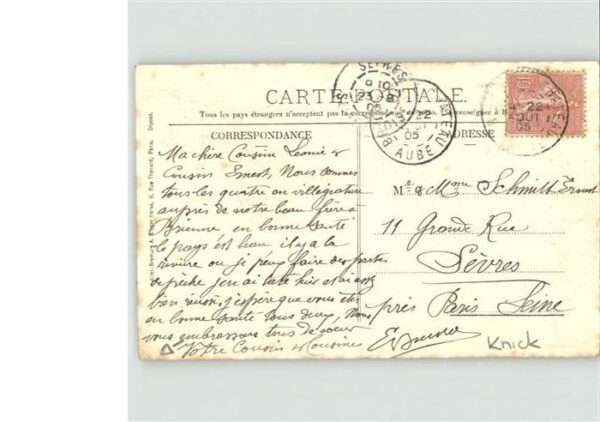 CARTE POSTALE.
Tous les pays étrangers n'acceptent pas la
CORRESPONDANCE
ADRESSE
SÈVRES
23 -8
05
22
AOUT
05
AUBE
Ma chère Cousine Léonie &
Cousin Ernest, Nous sommes
tous les quatre en villégiature
auprès de notre beau frère à
Brienne, en bonne santé
le pays est beau il y a la
rivière ou je peux faire des parties
de pêche, j'en ai tâté hier et ai assez
bien réussi, j'espère que vous êtes
en bonne santé tous deux, Nous
vous embrassons tous de coeur
Votre Cousin & Cousines
Mr & Mme Schmitt Ernest
11 Grande Rue
Sèvres
près Paris Seine
Knick